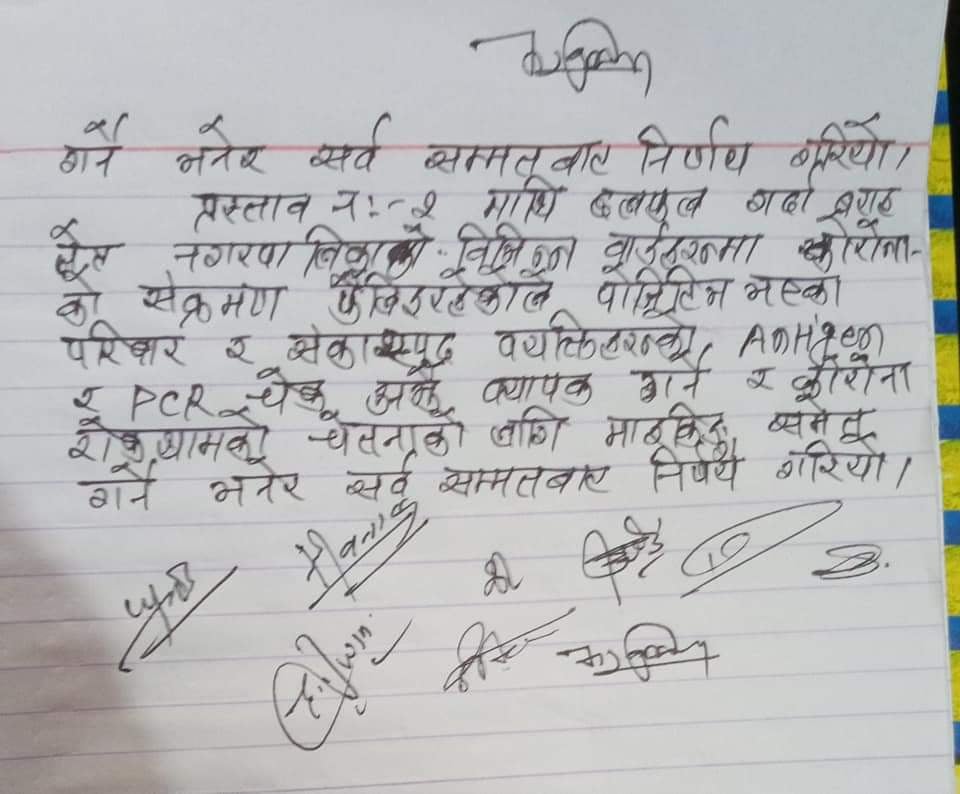 गर्ने भनेर सर्व सम्मतबाट निर्णय गरियो।
प्रस्ताव नं:- २ माथि छलफल गर्दा बराह
क्षेत्र नगरपालिकाको विभिन्न वार्डहरुमा कोरोना-
को संक्रमण फैलिइरहेकाले पोजिटिभ भएका
परिवार र संकास्पद व्यक्तिहरुको Antigen
र PCR चेक अझै व्यापक गर्ने र कोरोना
रोकथामको चेतनाको लागि माइकिङ समेत
गर्ने भनेर सर्व सम्मतबाट निर्णय गरियो।